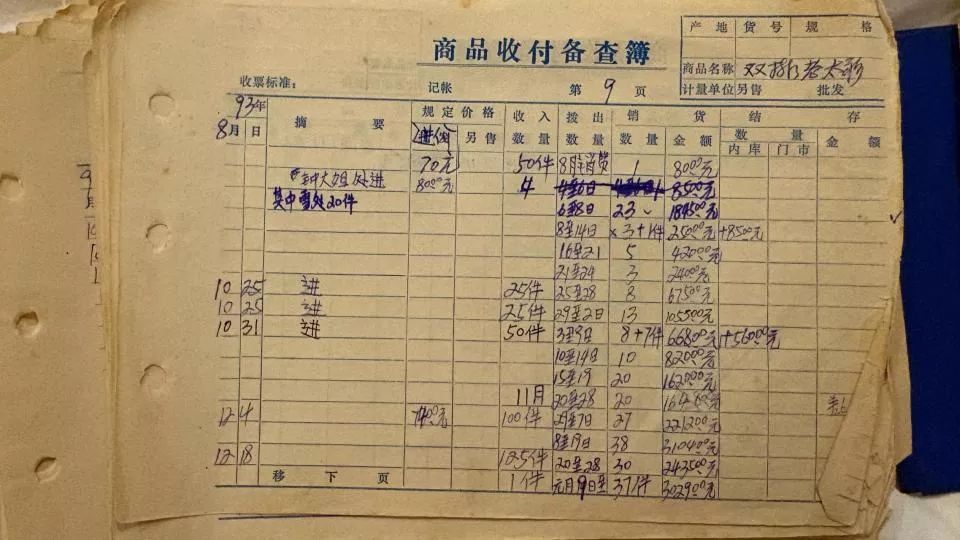 产地 货号 规格
商品收付备查簿
商品名称 双排
收票标准: 记帐 第 9 页 计量单位 另售 批发
93年 摘要 规定价格 收入 拨出 销货 结存
8月 日 进价 另售 数量 数量 数量 金额 数量 金额
内库 门市
70元 50件 8月 1 80.00元
钟大姐处进 80.00元 4 4至6日 85.00元
其中雪处20件 6至8日 23 1845.00元
8至14日 ×3+1件 250.00元+85.00元
16至21 5 420.00元
21至24 3 240.00元
10 25 进 25件 25至28 8 675.00元
10 25 进 25件 29至2日 13 1055.00元
10 31 进 50件 3至9日 8+7件 668.00元+560.00元
10至14日 10 820.00元
15至19 20 1620.00元
11月 20至28 20
12 4 74.00元 100件 29至7日 27 2212.00元
8至19日 38 3104.00元
12 18 125件 20至28 30 2435.00元
移下页 1件 元月 37件 3029.00元